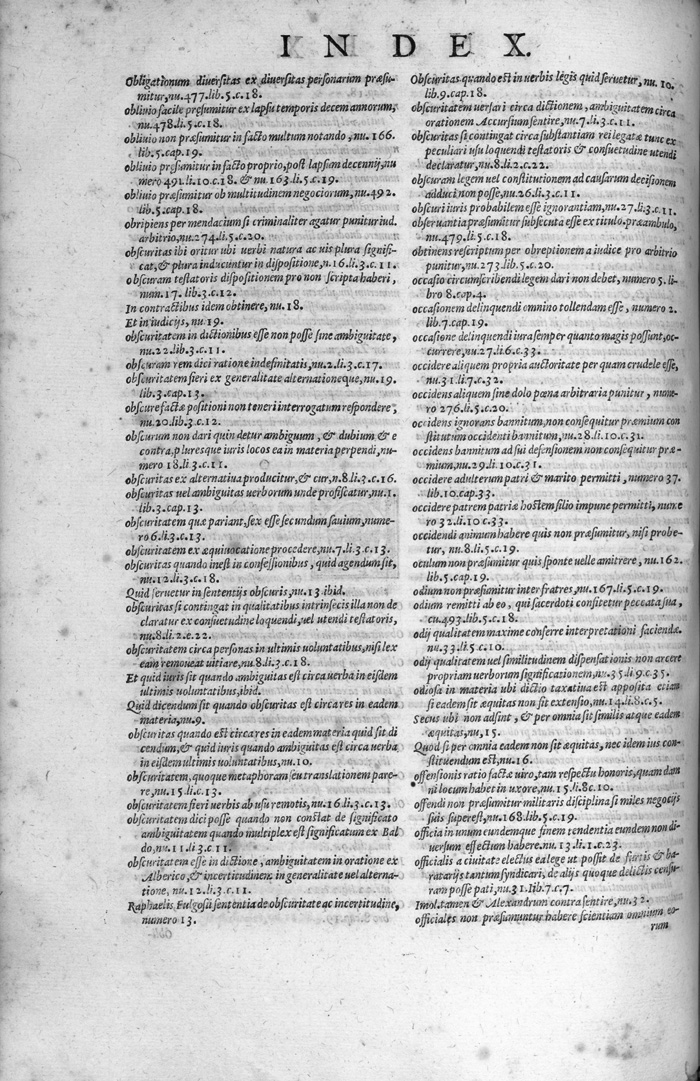 INDEX.
Obligationum diuersitas ex diuersitas personarum præsu-
mitur, nu.477.lib.5.c.18.
obliuio facile presumitur ex lapsu temporis decem annorum,
nu.478.li.5.c.18.
obliuio non præsumitur in facto multum notando, nu.166.
lib.5.cap.19.
obliuio presumitur in facto proprio, post lapsum decennij, nu
mero 491.li.10.c.18.& nu.163.li.5.c.19.
obliuio præsumitur ob multitudinem negociorum, nu.492.
lib.5.cap.18.
obripiens per mendacium si criminaliter agatur punitur iud.
arbitrio, nu.274.li.5.c.20.
obscuritas ibi oritur ubi uerbi natura ac uis plura signifi-
cat, & plura inducuntur in dispositione, n.16.li.3.c.11.
obscuram testatoris dispositionem pro non scripta haberi,
num.17. lib.3.c.12.
In contractibus idem obtinere, nu.18.
Et in iudicijs, nu.19.
obscuritatem in dictionibus esse non posse sine ambiguitate,
nu.22.lib.3.c.11.
obscuram rem dici ratione indefinitatis, nu.2.li.3.c.17.
obscuritatem fieri ex generalitate alternationeque, nu.19.
lib.3.cap.13.
obscure factæ positioni non teneri interrogatum respondere,
nu.20.lib.3.c.12.
obscurum non dari quin detur ambiguum, & dubium & e
contra, pluresque iuris locos ea in materia perpendi, nu-
mero 18.li.3.c.11.
obscuritas ex alternatiua producitur, & cur, n.8.li.3.c.16.
obscuritas uel ambiguitas uerborum unde profiscatur, nu.1.
lib.3.cap.13.
obscuritatem quæ pariant, sex esse secundum suuium, nume-
ro 6.li.3.c.13.
obscuritatem ex æquiuocatione procedere, nu.7.li.3.c.13.
obscuritas quando inest in confessionibus, quid agendum sit,
nu.12.li.3.c.18.
Quid seruetur in sententijs obscuris, nu.13 ibid.
obscuritas si contingat in qualitatibus intrinsecis illa non de
claratur ex consuetudine loquendi, uel utendi testatoris,
nu.8.li.2.e.22.
obscuritatem circa personas in ultimis uoluntatibus, nisi lex
eam remoueat uitiare, nu.8.li.3.c.18.
Et quid iuris sit quando ambiguitas est circa uerba in eisdem
ultimis uoluntatibus, ibid.
Quid dicendum sit quando obscuritas est circa res in eadem
materia, nu.9.
obscuritas quando est circa res in eadem materia quid sit di
cendum, & quid iuris quando ambiguitas est circa uerba
in eisdem ultimis uoluntatibus, nu.10.
obscuritatem, quoque metaphoram seu translationem pare-
re, nu.15.li.c.13.
obscuritatem fieri uerbis ab usu remotis, nu.16.li.3.c.13.
obscuritatem dici posse quando non constat de significato
ambiguitatem quando multiplex est significatum ex Bal
do, nu.11.li.3.11.
obscuritatem esse in dictione, ambiguitatem in oratione ex
Alberico, & incertitudinem in generalitate uel alterna-
tione, nu.12.li.3.c.11.
Raphaelis Fulgosii sententia de obscuritate ac incertitudine,
numero 13.
Obscuritas quando est in uerbis legis quid seruetur, nu.10.
lib.9.cap.18.
obscuritatem uersari circa dictionem, ambiguitatem circa
orationem Accursium sentire, nu.7.li.3.c.11.
obscuritas si contingat circa substantiam rei legatæ tunc ex
peculiari usu loquendi testatoris & consuetudine utendi
declaratur, nu.8.li.2.c.22.
obscuram legem uel constitutionem ad causarum decisionem
adduci non posse, nu.26.li.3.c.11.
obscuri iuris probabilem esse ignorantiam, nu.27.li.3.c.11.
obseruantia præsumitur subsecuta esse ex titulo. præambulo,
nu.479.li.5.c.18.
obtinens rescriptum per obreptionem a iudice pro arbitrio
punitur, nu.273.lib.5.c.20.
occasio circumscribendi legem dari non debet, numero 5.li-
bro 8.cap.4.
occasionem delinquendi omnino tollendam esse, numero 2.
lib.7.cap.19.
occasione delinquendi iura semper quanto magis possunt, oc-
currere, nu.27.li.6.c.33.
occidere aliquem propria auctoritate per quam crudele esse,
nu.31.li.7.c.32.
occidens aliquem sine dolo pœna arbitraria punitur, nume-
ro 276.li.5.c.20.
occidens ignorans bannitum, non consequitur præmium con
stitutum occidenti bannitum, nu.28.li.10.c.31.
occidens bannitum ad sui defensionem non consequitur præ-
mium, nu.29.li.10.c.31.
occidere adulterum patri & marito permitti, numero 37.
lib.10.cap.33.
occidere patrem patriæ hostem filio impune permitti, nume
ro 32.li.10 c.33.
occidendi animum habere quis non præsumitur, nisi probe-
tur, nu.8.li.5.c.19.
oculum non præsumitur quis sponte uelle amitrere, nu.162.
lib.5.cap.19.
odium non præsumitur inter fratres, nu.167.li.5.c.19.
odium remitti ab eo, qui sacerdoti confitetur peccata sua,
cu.493.lib.5.c.18.
odij qualitatem maxime conferre interpretationi faciendæ.
nu.33.li.5.c.10.
odij qualitatem uel similitudinem dispensationis non arcere
propriam uerborum significationem, nu.35.li.9.c.35.
odiosa in materia ubi dictio taxatiua est apposita etiam
si eadem sit æquitas non sit extensio, nu.14.li.8.c.5.
Secus ubi non adsint, & per omnia sit similis atque eadem
æquitas, nu,15.
Quod si per omnia eadem non sit æquitas, nec idem ius con-
stituendum est, nu.16.
offensionis ratio factæ uiro, tam respectu honoris, quam dam
ni locum habet in uxore, nu.15.li.8c.10.
offendi non præsumitur militaris disciplina si miles negocijs
suis superest, nu.168.lib.5.c.19.
officia in unum eundemque finem tendentia eundem non di-
uersum effectum habere. nu.13.li.11.c.23.
officialis a ciuitate electus ea lege ut possit de furtis & ba-
ratarijs tantum syndicari, de alijs quoque delictis censu-
ram posse pati, nu.31.lib.7.c.7.
Imol. tamen & Alexandrum contra sentire, nu.32.
officiales non præsumuntur habere scientiam omnium eo-
rum